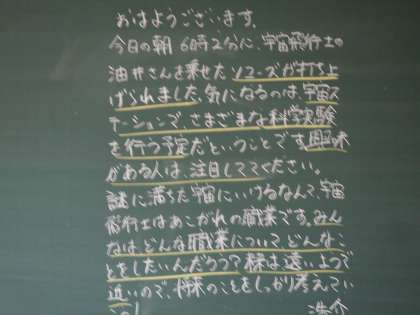 おはようございます。
今日の朝 6時2分に、宇宙飛行士の
油井さんを乗せたソユーズが打ちよ
げられました。気になるのは、宇宙ス
テーションで、さまざまな科学実験
を行う予定だということです。興味
がある人は、注目してください。
謎に満ちた宇宙にいけるなんて、宇宙
飛行士はあこがれの職業です。みん
なは、どんな職業について、どんなこ
とをしたいんだろう?様は遠いようで
近いので、将来のことをしっかり考えてい
こう!
浩介